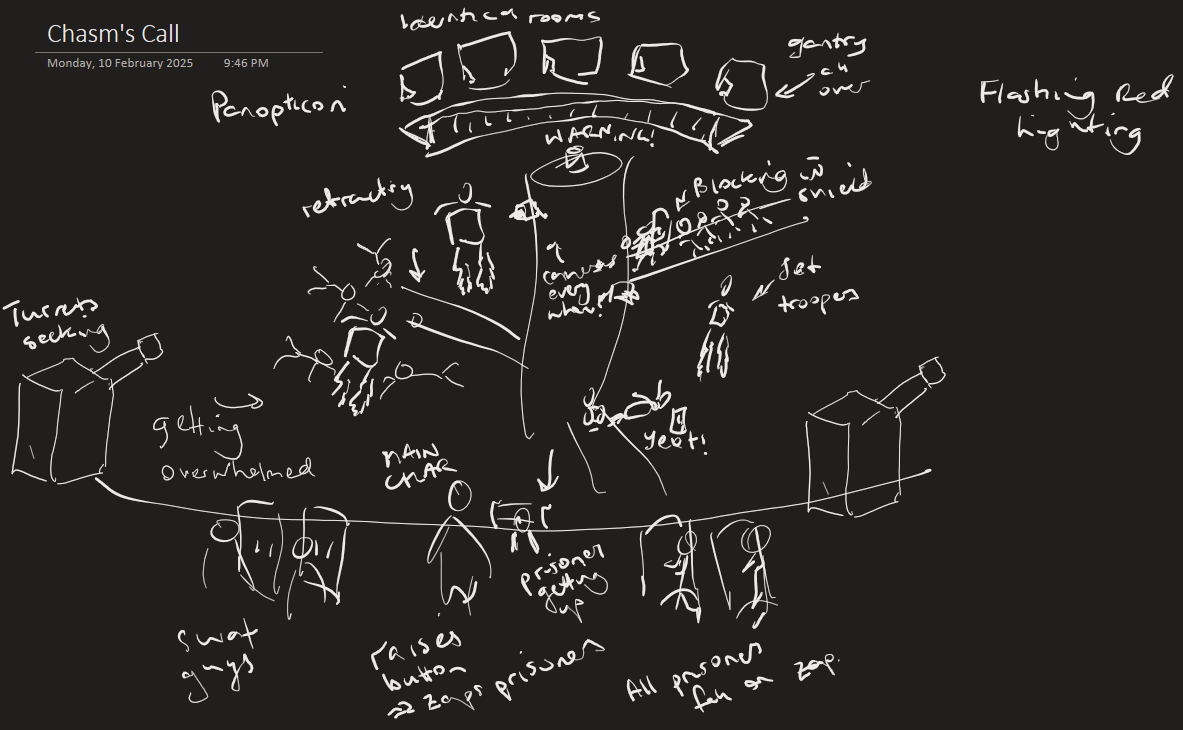 Chasm's Call
Monday, 10 February 2025 9:46 PM
Identical rooms
gantry
all
over
Panopticon
Flashing Red
Lighting
WARNING!
Blocking w
shield
retracting
cameras
every
where!
Jet
troopers
Turrets
seeking
getting
overwhelmed
Yeet!
MAIN
CHAR
prisoner
getting
up
Swat
guys
raises
button
⇒ zaps prisoners
All prisoners
fall on zap.